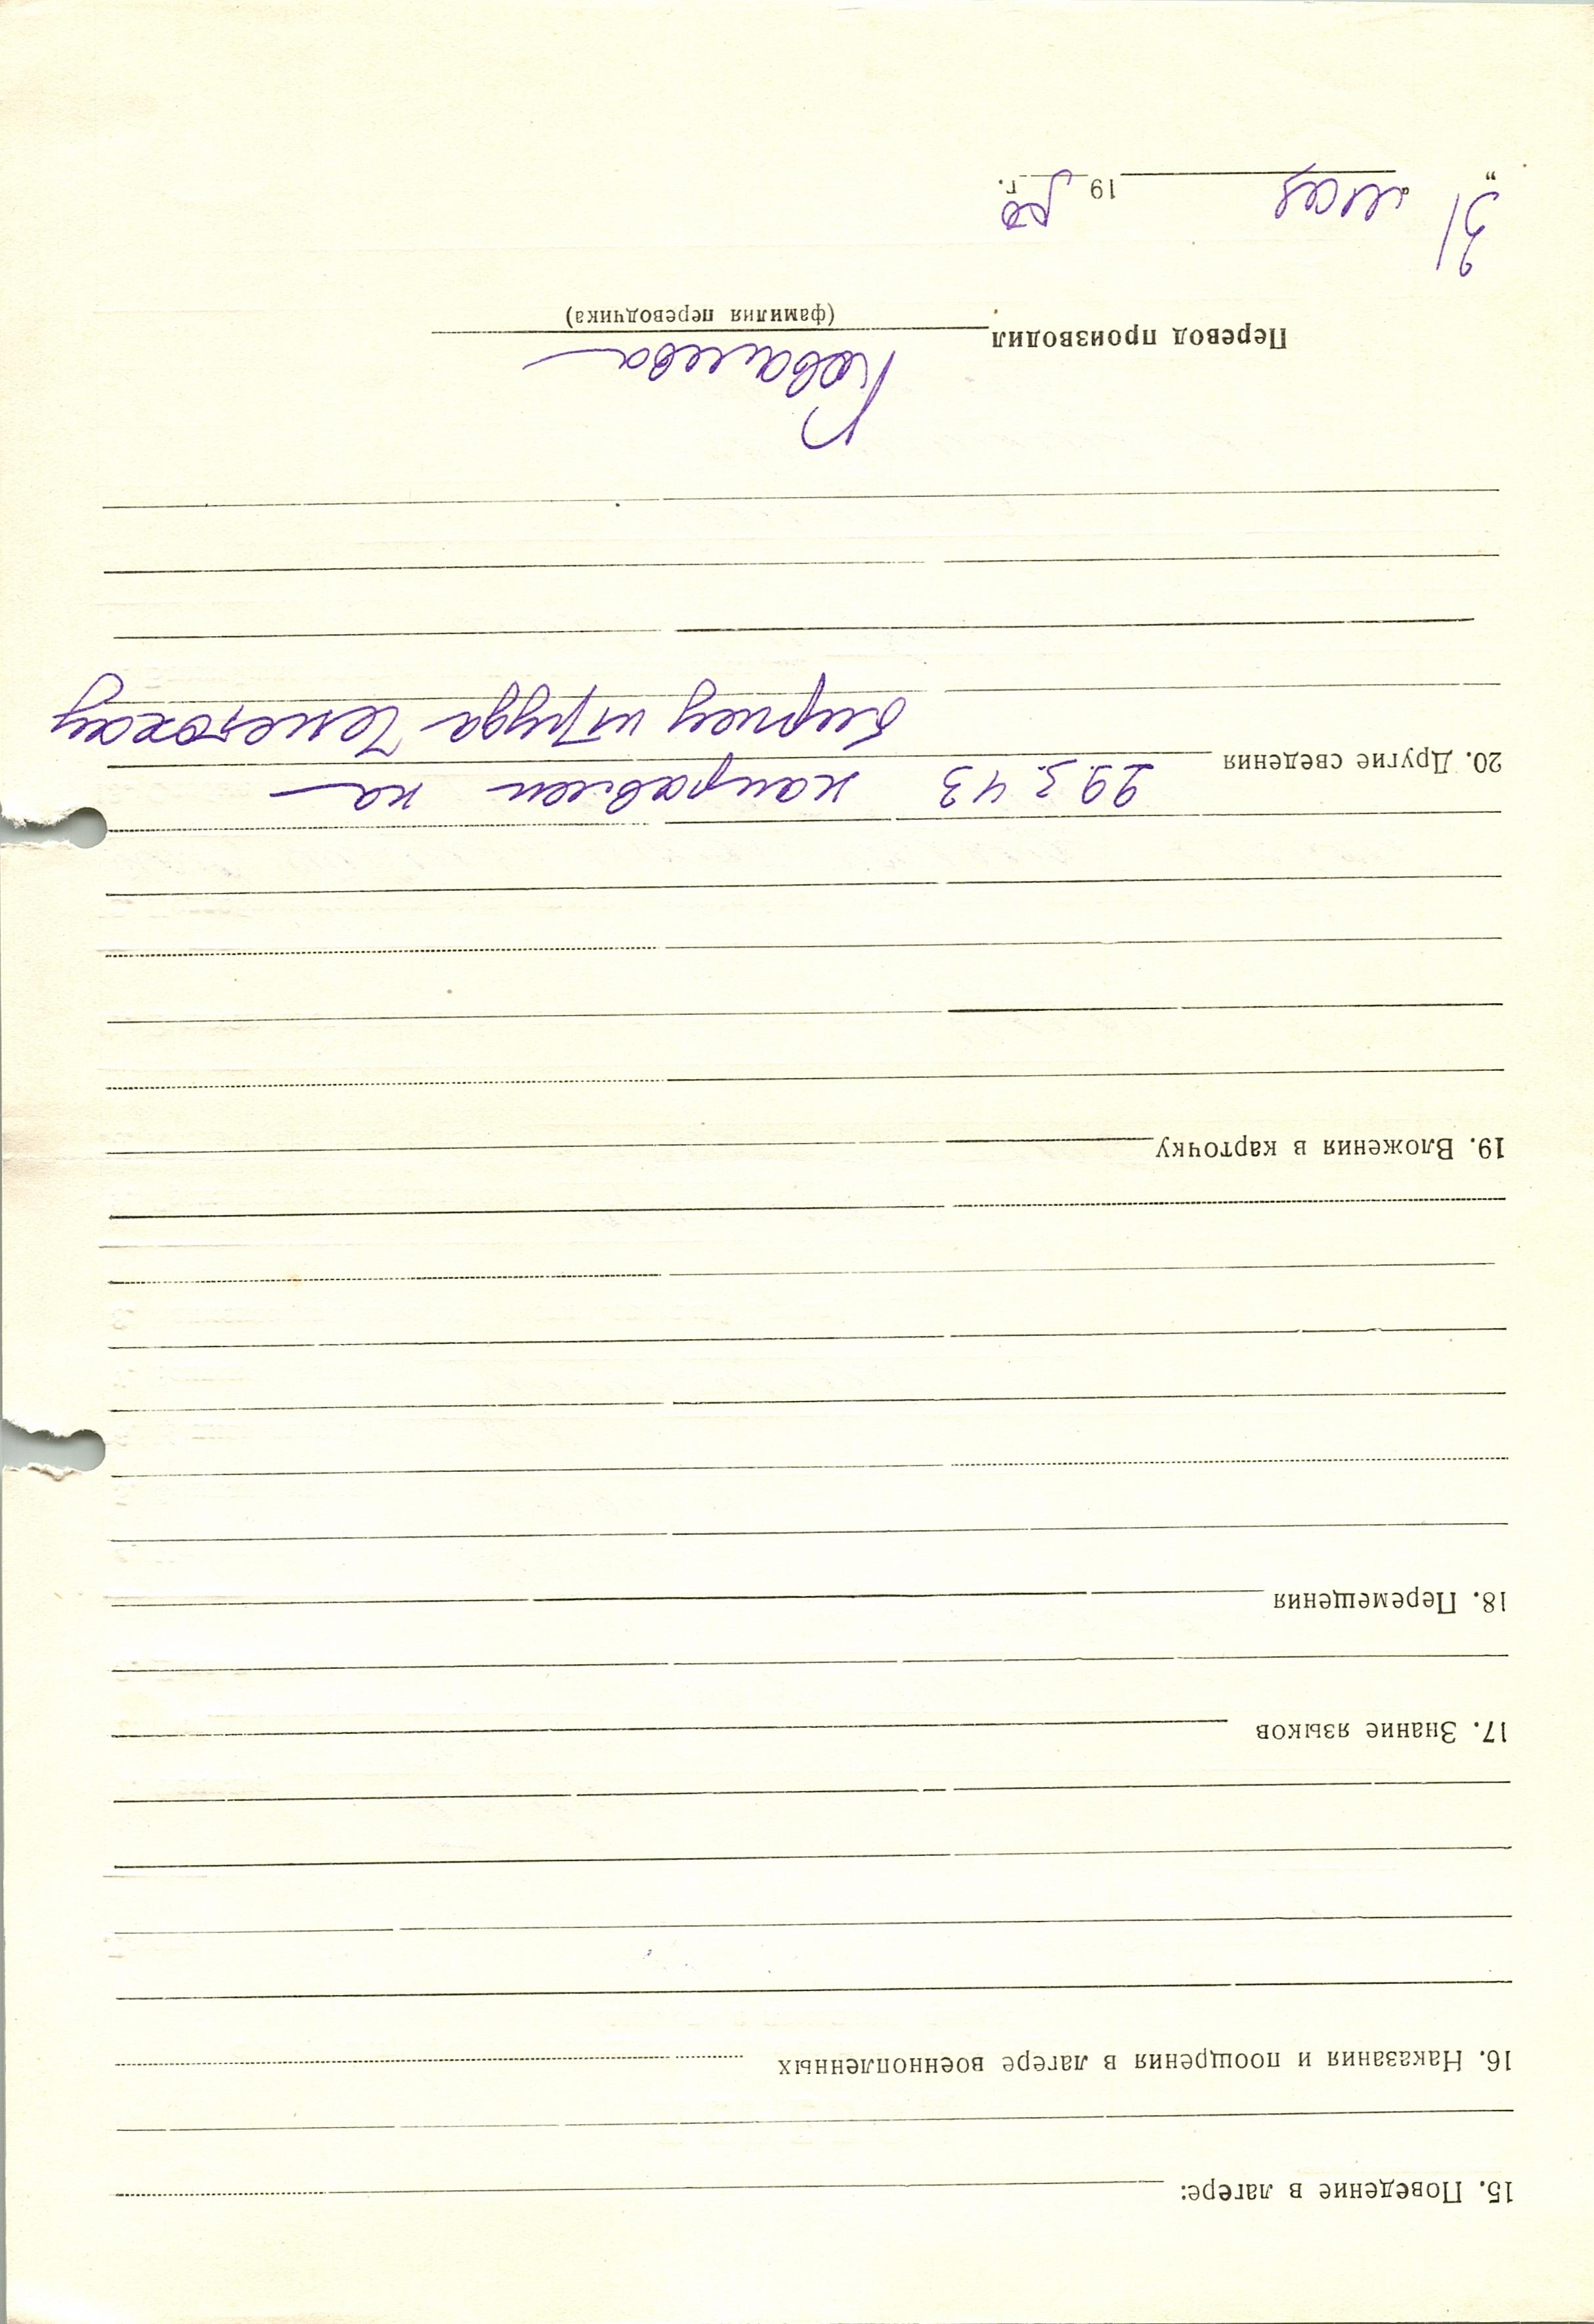 15. Поведение в лагере:
16. Наказания и поощрения в лагере военнопленных
17. Знание языков
18. Перемещения
19. Вложения в карточку
20. Другие сведения 29.3.43 направлен на
биржу труда Ченстохау
Ковалева
Перевод производил
(фамилия переводчика)
"31" мая 1950 г.